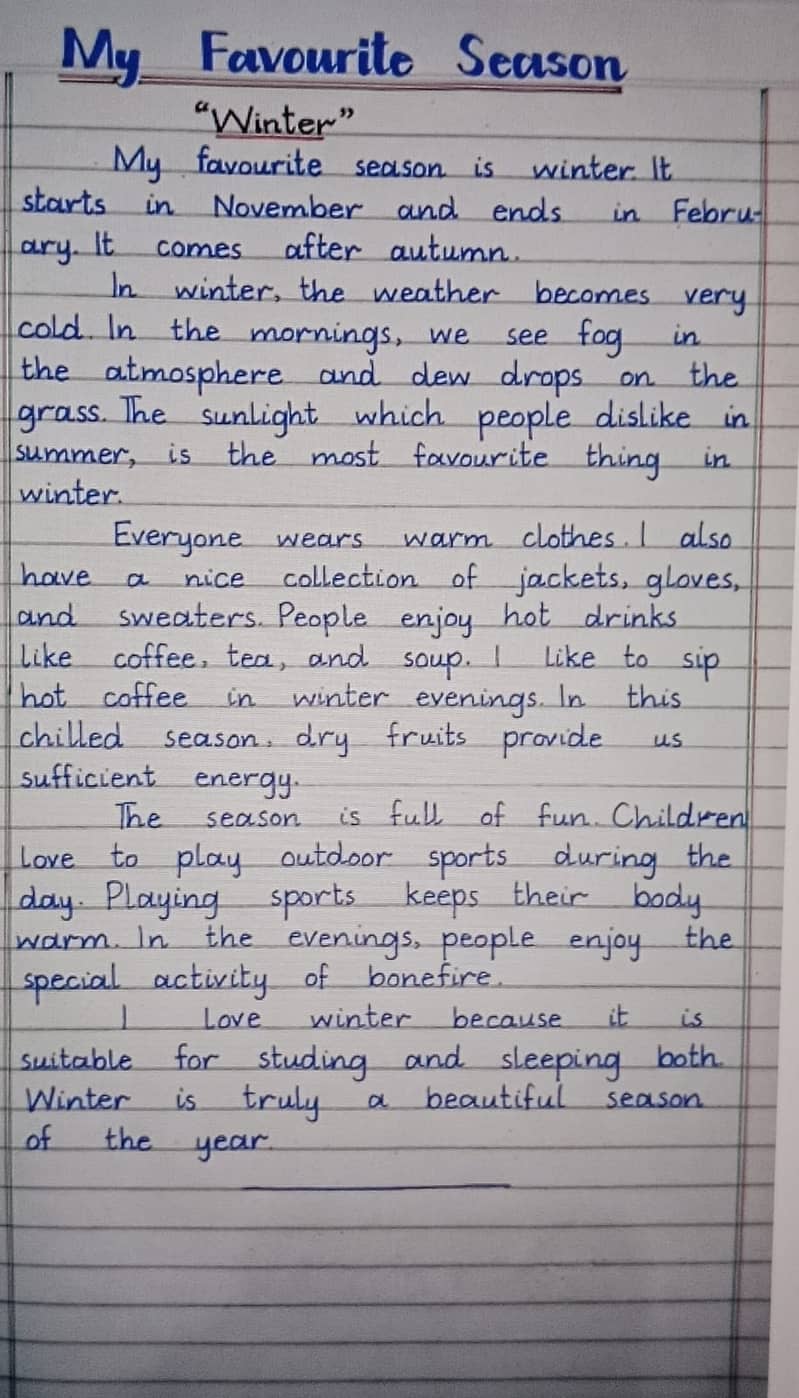 My Favourite Season
"Winter"
My favourite season is winter. It
starts in November and ends in Febru-
ary. It comes after autumn.
In winter, the weather becomes very
cold. In the mornings, we see fog in
the atmosphere and dew drops on the
grass. The sunlight which people dislike in
summer, is the most favourite thing in
winter.
Everyone wears warm clothes. I also
have a nice collection of jackets, gloves,
and sweaters. People enjoy hot drinks
like coffee, tea, and soup. I like to sip
hot coffee in winter evenings. In this
chilled season, dry fruits provide us
sufficient energy.
The season is full of fun. Children
love to play outdoor sports during the
day. Playing sports keeps their body
warm. In the evenings, people enjoy the
special activity of bonefire.
I love winter because it is
suitable for studing and sleeping both.
Winter is truly a beautiful season
of the year.